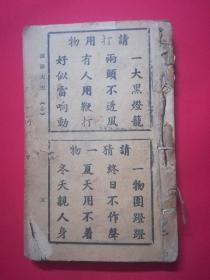 請打用物
一大黑燈籠
兩頭不透風
有人用鞭打
好似雷响動
請猜一物
一物團蹬蹬
終日不作聲
夏天用不着
冬天親人身
五